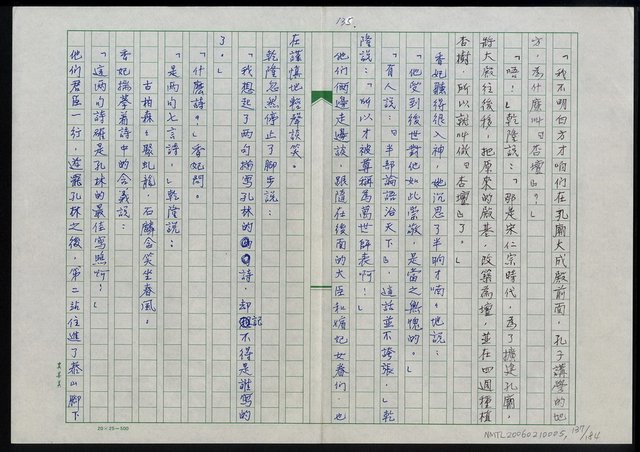 135.
「我不明白方才咱們在孔廟大成殿前面，孔子講學的地
方，為什麼叫『杏壇』。」
「唔！」乾隆說：「那是宋仁宗時代，為了擴建孔廟，
將大殿往後移，把原來的殿基，改築為壇，並在四週種植
杏樹，所以就叫做『杏壇』了。」
香妃聽得很入神，她沉思了半晌才喃喃地說：
「他受到後世對他如此崇敬，是當之無愧的。」
「有人說：『半部論語治天下』，這話並不誇張。」乾
隆說：「所以才被尊稱為萬世師表啊！」
他們倆邊走邊談，跟隨在後面的大臣和嬪妃女眷們，也
在謹慎地輕聲談笑。
乾隆忽然停止了腳步說：
「我想起了兩句描寫孔林的詩，却記不得是誰寫的
了。」
「什麼詩。」香妃問。
「是兩句七言詩。」乾隆說：
古柏森森聚虬龍，石麟含笑坐春風。
香妃揣摹着詩中的含義說：
「這兩句詩確是孔林的最佳寫照啊！」
他們君臣一行，遊罷孔林之後，第二站住進了泰山腳下
20×25=500
NMTL20060210005, 137/184